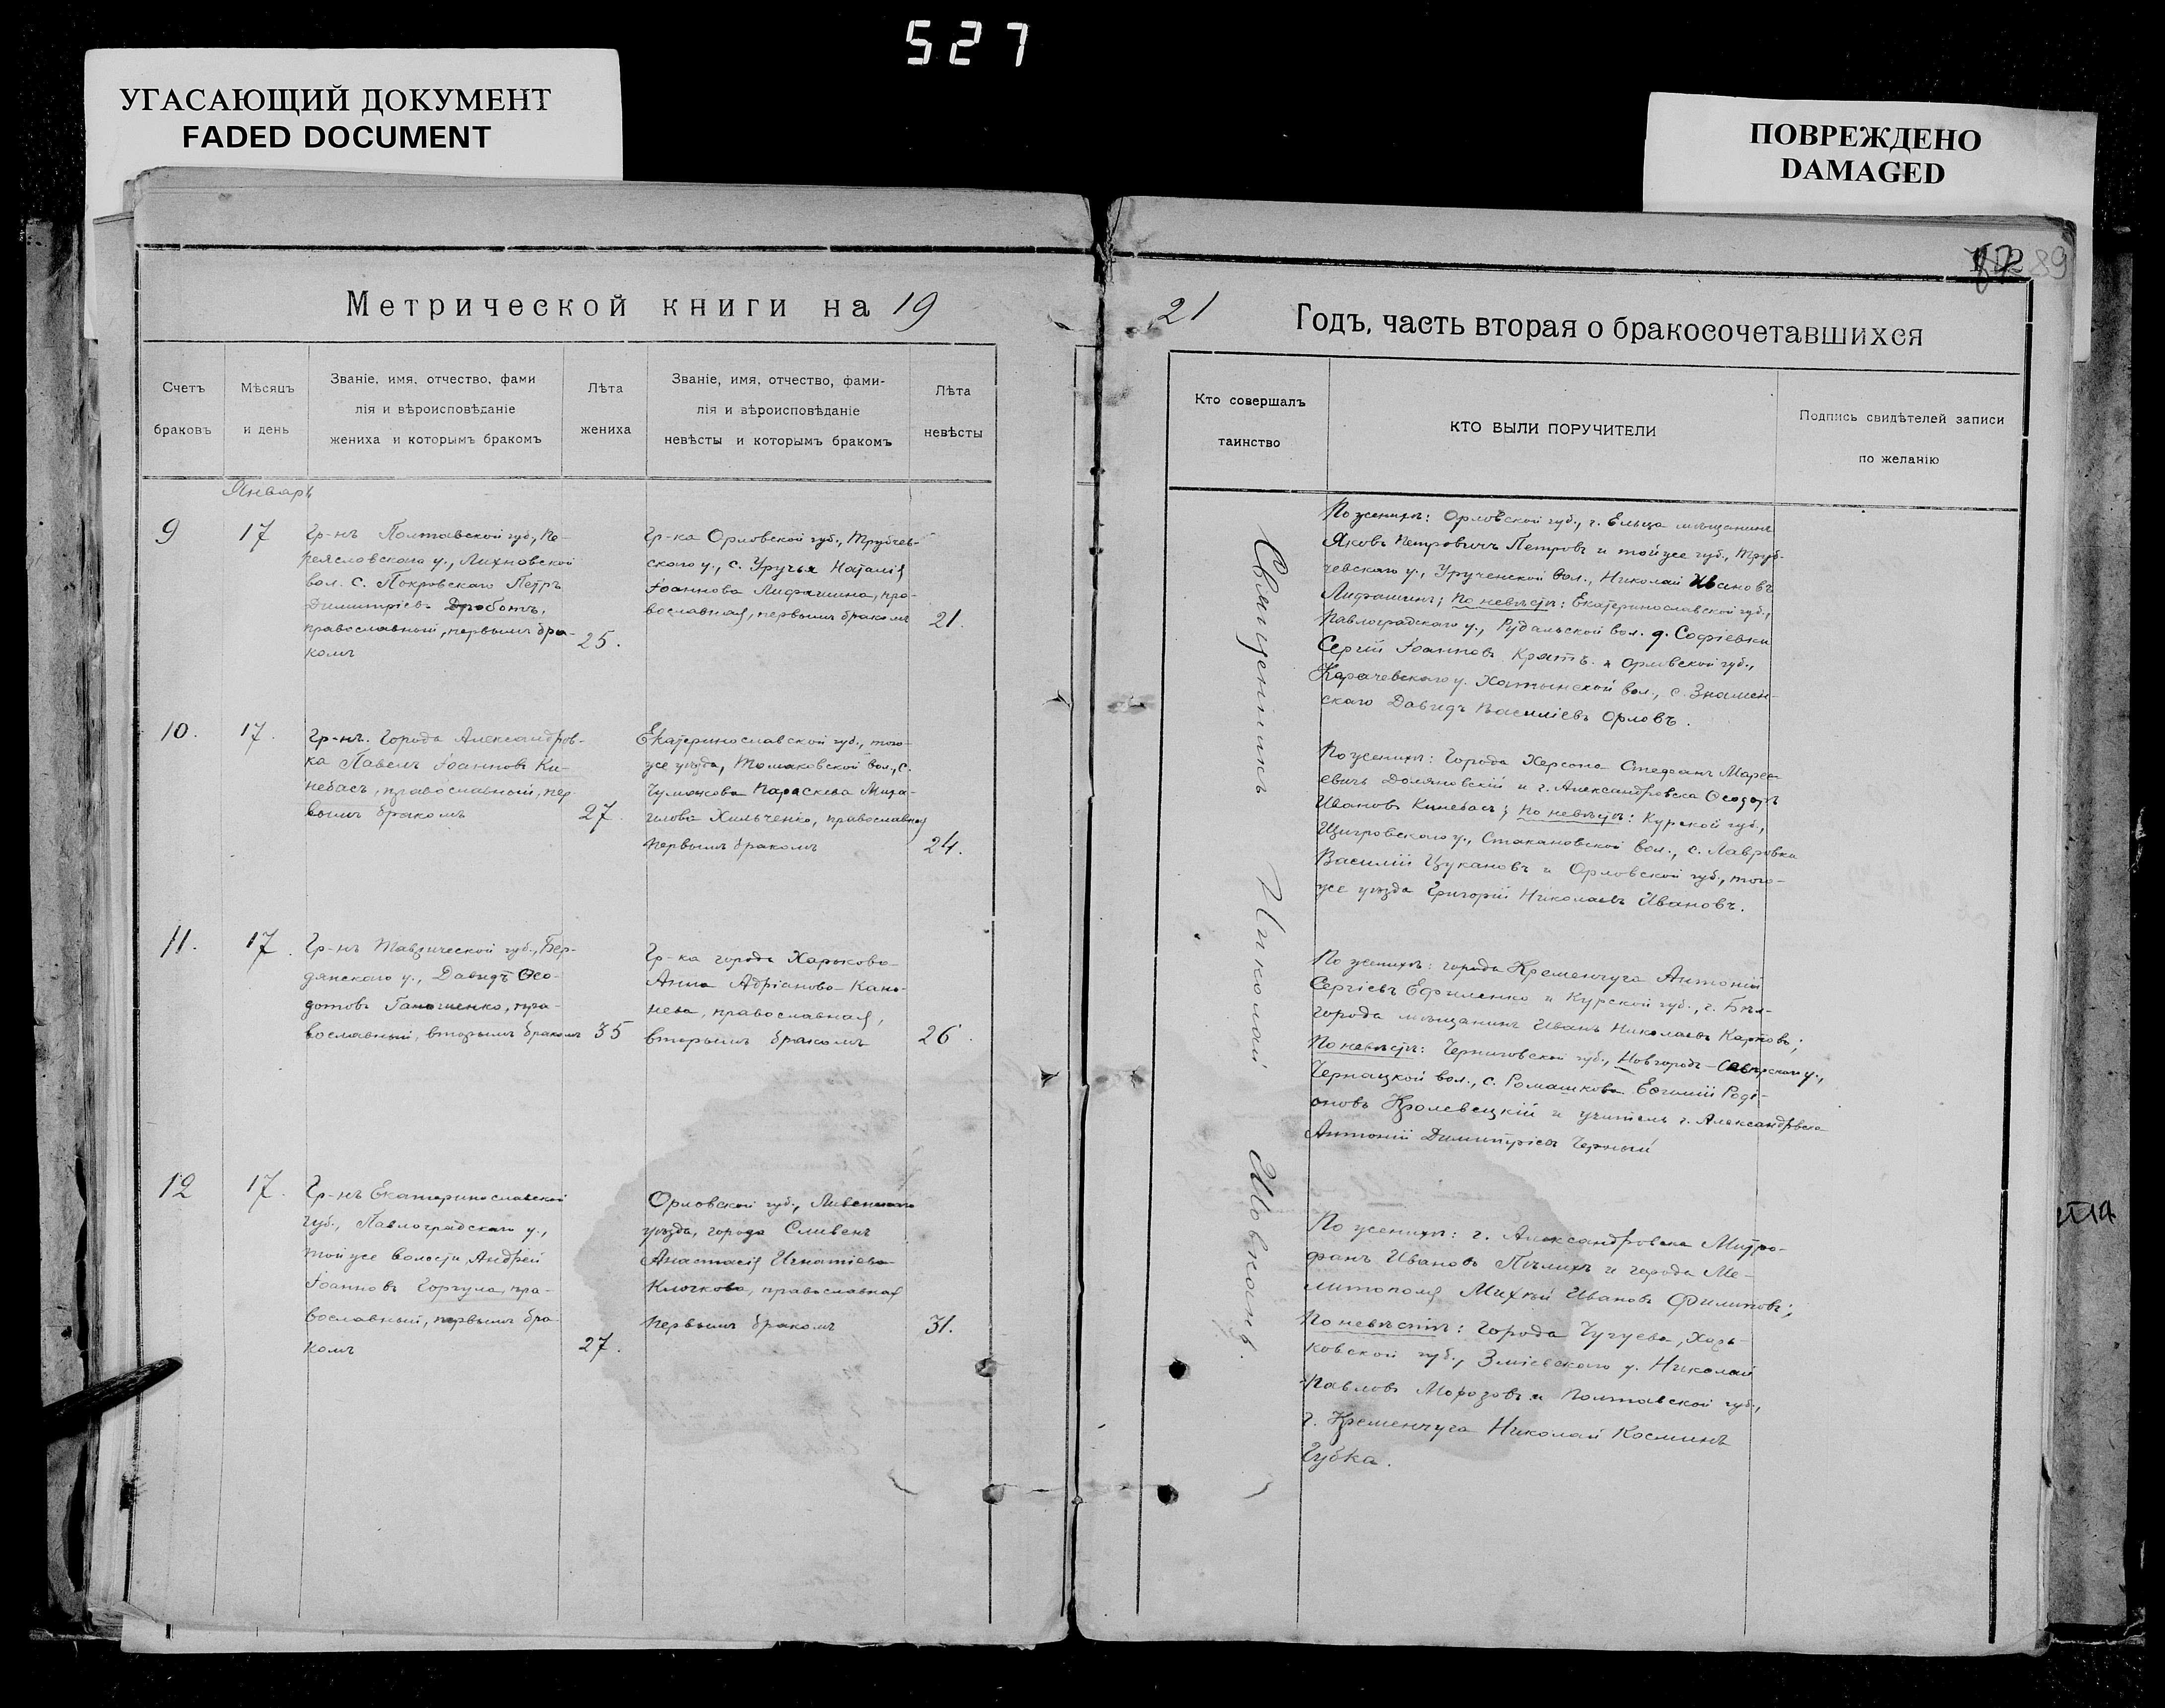 527
УГАСАЮЩИЙ ДОКУМЕНТ
FADED DOCUMENT
ПОВРЕЖДЕНО
DAMAGED
89
Метрической книги на 19
21 Годъ, часть вторая о бракосочетавшихся
Счетъ
браковъ
Мѣсяцъ
и день
Званіе, имя, отчество, фами
лія и вѣроисповѣданіе
жениха и которымъ бракомъ
Лѣта
жениха
Званіе, имя, отчество, фами-
лія и вѣроисповѣданіе
невѣсты и которымъ бракомъ
Лѣта
невѣсты
Кто совершалъ
таинство
КТО БЫЛИ ПОРУЧИТЕЛИ
Подпись свидѣтелей записи
по желанію
Январь
9
17
Гр-нъ Полтавской губ., Пе-
реясловскаго у., Лихновской
вол. с. Покровскаго Петръ
Димитріевъ Дроботъ,
православный, первымъ бра-
комъ
25.
Гр-ка Орловской губ., Трубчев-
скаго у., с. Уручья Наталія
Іоаннова Лифашина, пра-
вославная, первымъ бракомъ
21.
Священникъ Николай
По женихѣ: Орловской губ., г. Ельца мѣщанинъ
Яковъ Петровичъ Петровъ и той же губ., Труб-
чевскаго у., Урученской вол., Николай Ивановъ
Лифашинъ; по невѣстѣ: Екатеринославской губ.,
Павлоградскаго у., вол. д. Софіевки
Сергій Іоанновъ и Орловской губ.,
Карачевскаго у. Хотынской вол., с. Знамен-
скаго Давидъ Василіевъ Орловъ.
10.
17.
Гр-нъ. города Александров-
ка Павелъ Іоанновъ Ки-
небасъ, православный, пер
вымъ бракомъ
27.
Екатеринославской губ., того-
же уѣзда, Томаковской вол., с.
Чумакова Параскева Миха-
илова Хильченко, православная
первымъ бракомъ
24.
По женихѣ: Города Херсона Стефанъ
евичъ и г. Александровска Ѳеодоръ
Ивановъ Кинебасъ; по невѣстѣ: Курской губ.,
Щигровскаго у., Стакановской вол., с. Лавровка
Василій Цукановъ и Орловской губ., того-
же уѣзда Григорій Николаевъ Ивановъ.
11.
17.
Гр-нъ Таврической губ., Бер-
дянскаго у., Давидъ Ѳео-
дотовъ пра-
вославный, вторымъ бракомъ
35
Гр-ка города Харькова
Анна Адріанова Кана-
нева, православная,
вторымъ бракомъ
26.
По женихѣ: города Кременчуга Антоній
Сергіевъ Ефименко и Курской губ., г. Бѣл-
города мѣщанинъ Иванъ Николаевъ Карповъ;
По невѣстѣ: Черниговской губ., Новгородъ-Сѣверскаго у.,
Чернацкой вол., с. Ромашкова Евгеній Роді-
оновъ Кролевецкій и учитель г. Александровска
Антоній Димитріевъ Черный
12
17.
Гр-нъ Екатеринославской
губ., Павлоградскаго у.,
той же волости Андрей
Іоанновъ Горгула, пра-
вославный, первымъ бра-
комъ
27.
Орловской губ., Ливенскаго
уѣзда, города Сливенъ
Анастасія Игнатіева
Клочкова, православная
первымъ бракомъ
31.
По женихѣ: г. Александровска Митро-
фанъ Ивановъ и города Ме-
литополя Михей Ивановъ Филиповъ;
По невѣстѣ: Города Чугуева, Харь-
ковской губ., Зміевскаго у. Николай
Павловъ Морозовъ и Полтавской губ.,
г. Кременчуга Николай Косминъ
Губка.